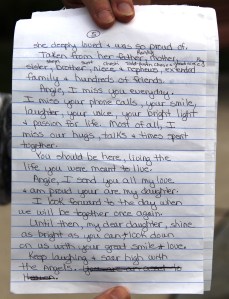 5
she deeply loved & was so proud of.
Taken from her father, mother,
sister, brother, niece & nephews, extended
family & hundreds of friends.
Angie, I miss you everyday.
I miss your phone calls, your smile,
laughter, your voice, your bright light
& passion for life. Most of all, I
miss our hugs, talks & times spent
together.
You should be here, living the
life you were meant to live.
Angie, I send you all my love
& am proud your are my daughter.
I look forward to the day when
we will be together once again.
Until then, my dear daughter, shine
as bright as you can & look down
on us with your great smile & love.
Keep laughing & soar high with
the Angels.